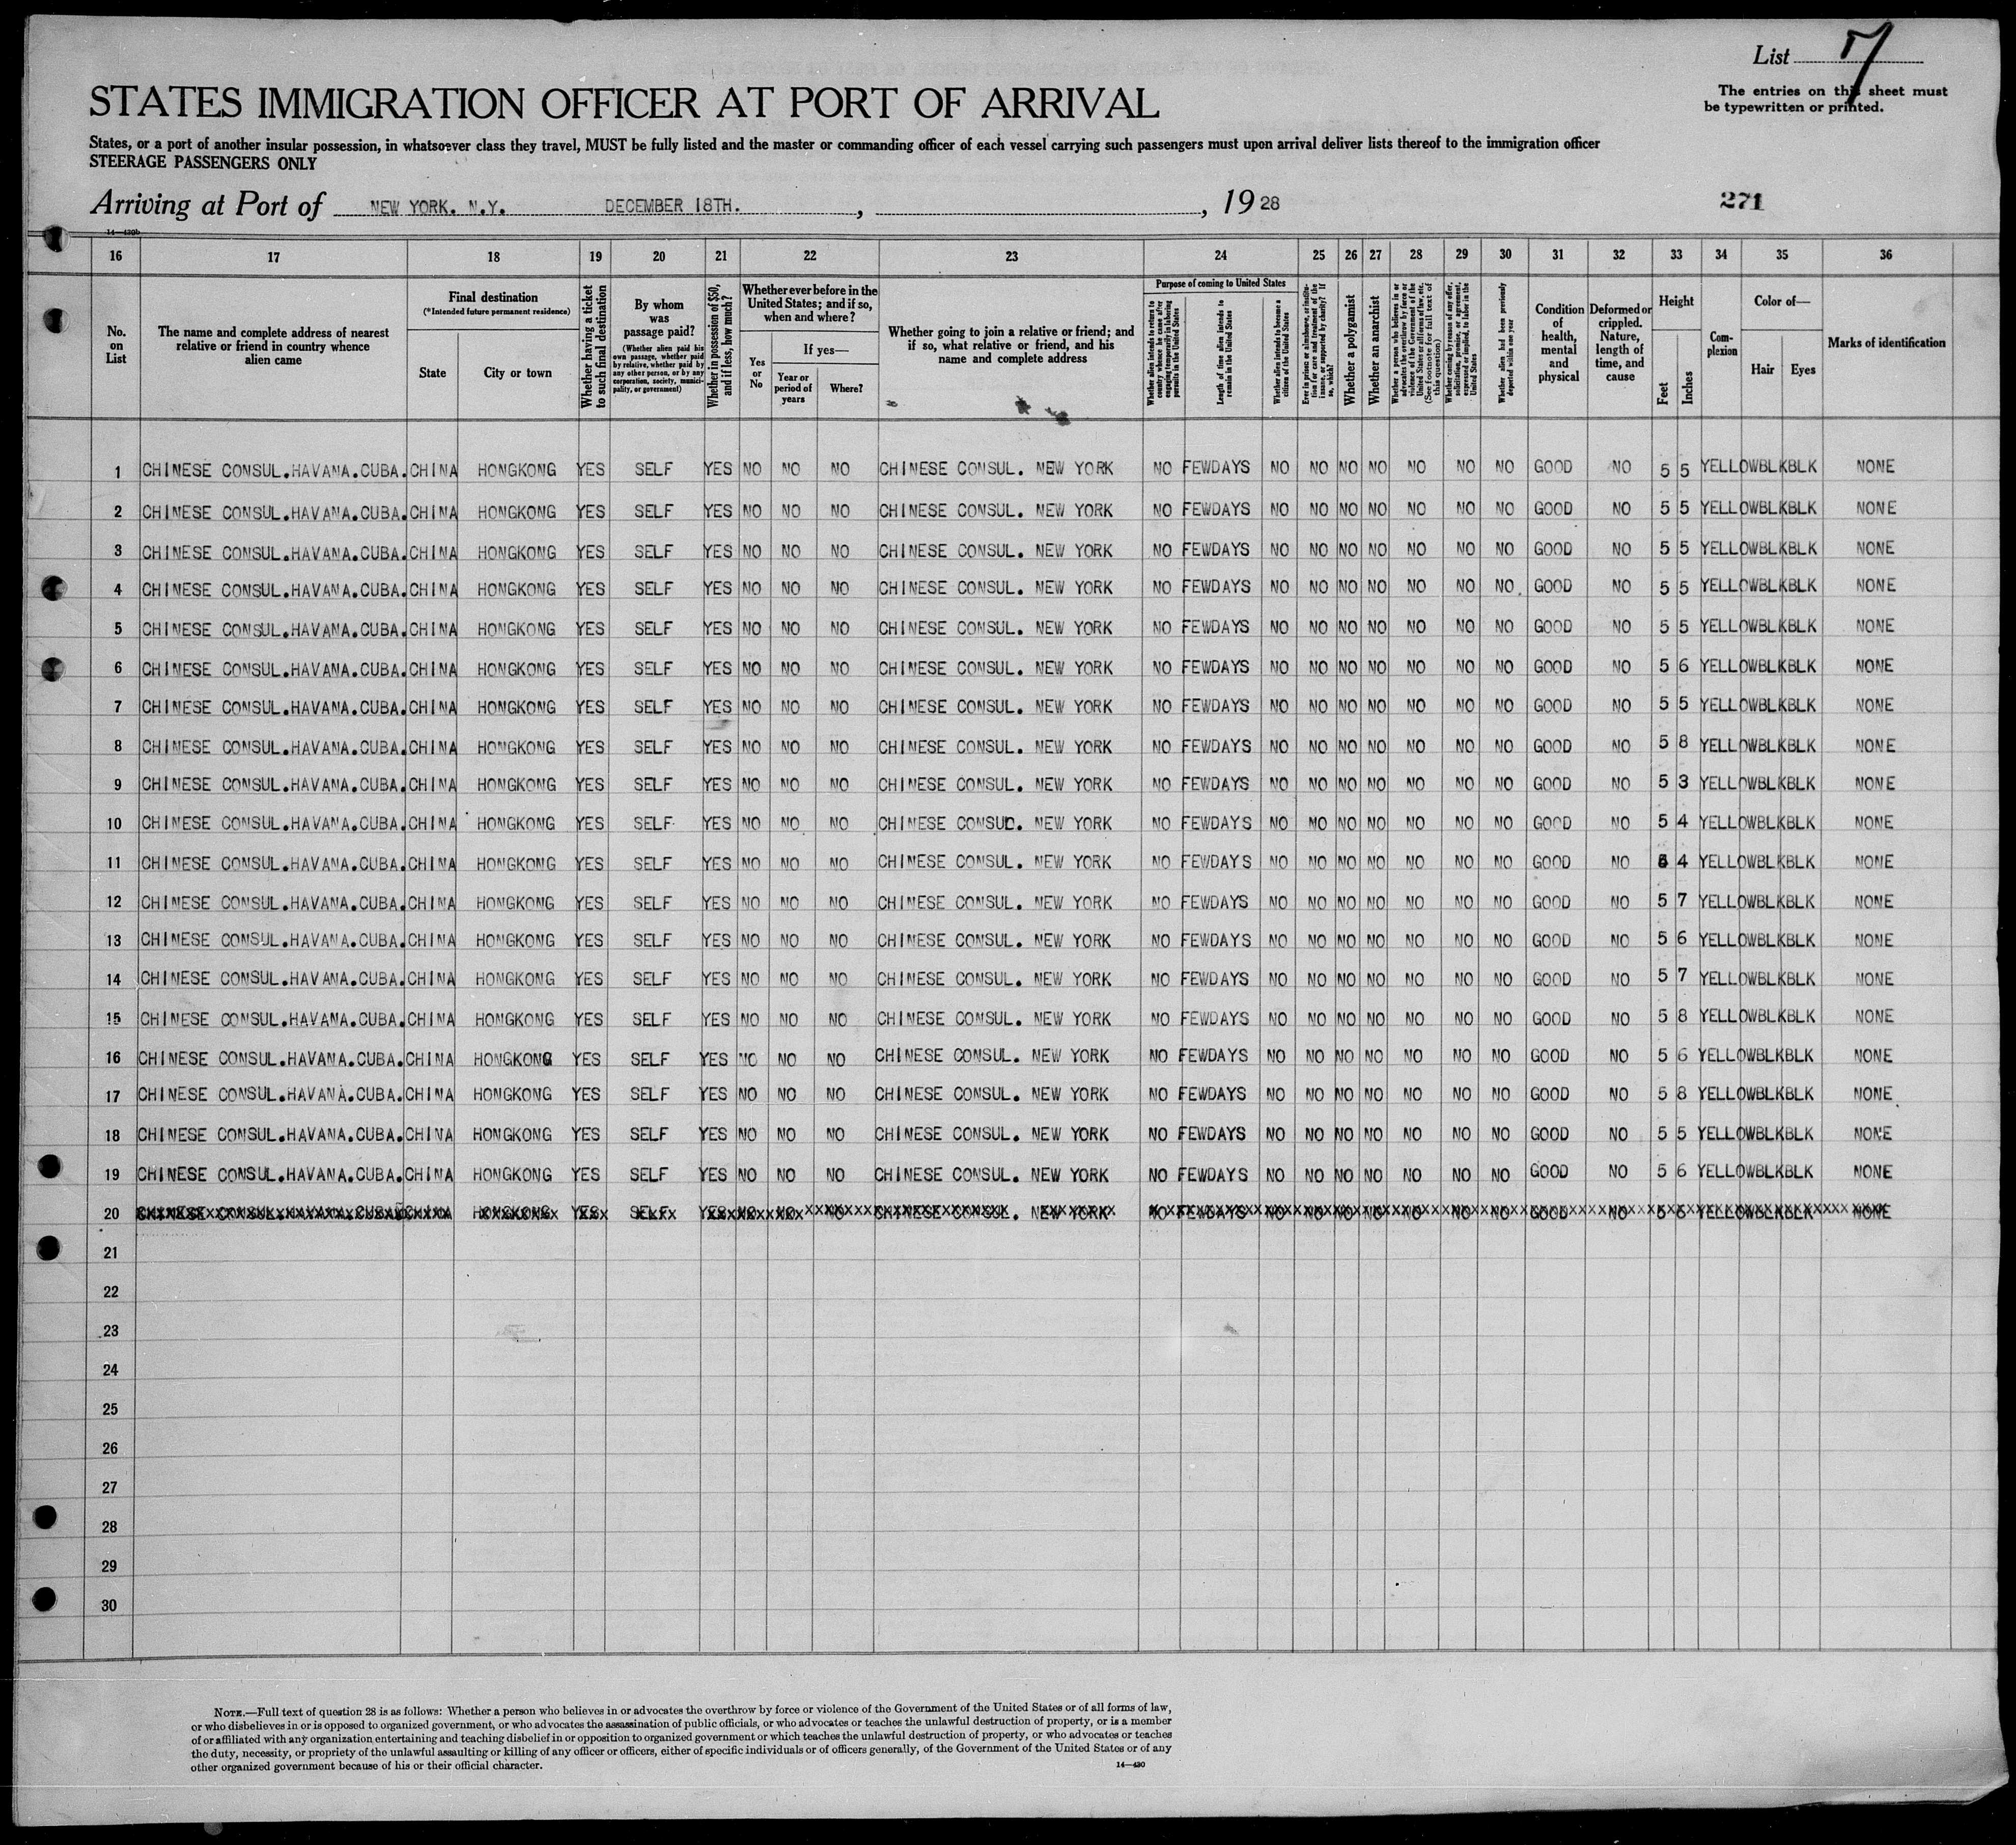 List 7
The entries on this sheet must
be typewritten or printed.
STATES IMMIGRATION OFFICER AT PORT OF ARRIVAL
States, or a port of another insular possession, in whatsoever class they travel, MUST be fully listed and the master or commanding officer of each vessel carrying such passengers must upon arrival deliver lists thereof to the immigration officer
STEERAGE PASSENGERS ONLY
Arriving at Port of NEW YORK. N.Y. DECEMBER 18TH. , , 19 28
271
14—430b
16 17 18 19 20 21 22 23 24 25 26 27 28 29 30 31 32 33 34 35 36
No. on List
The name and complete address of nearest relative or friend in country whence alien came
Final destination
(*Intended future permanent residence)
State
City or town
Whether having a ticket to such final destination
By whom was passage paid?
(Whether alien paid his own passage, whether paid by relative, whether paid by any other person, or by any corporation, society, municipality, or government)
Whether in possession of $50, and if less, how much?
Whether ever before in the United States; and if so, when and where?
Yes or No
If yes—
Year or period of years
Where?
Whether going to join a relative or friend; and if so, what relative or friend, and his name and complete address
Purpose of coming to United States
Whether alien intends to return to country whence he came after engaging temporarily in laboring pursuits in the United States
Length of time alien intends to remain in the United States
Whether alien intends to become a citizen of the United States
Ever in prison or almshouse, or institution for care and treatment of the insane, or supported by charity? If so, which?
Whether a polygamist
Whether an anarchist
Whether a person who believes in or advocates the overthrow by force or violence of the Government of the United States or all forms of law, etc. (See footnote for full text of this question)
Whether coming by reason of any offer, solicitation, promise, or agreement, expressed or implied, to labor in the United States
Whether alien had been previously deported within one year
Condition of health, mental and physical
Deformed or crippled. Nature, length of time, and cause
Height
Feet
Inches
Complexion
Color of—
Hair
Eyes
Marks of identification
1 CHINESE CONSUL.HAVANA.CUBA. CHINA HONGKONG YES SELF YES NO NO NO CHINESE CONSUL. NEW YORK NO FEWDAYS NO NO NO NO NO NO NO GOOD NO 5 5 YELLOWBLKBLK NONE
2 CHINESE CONSUL.HAVANA.CUBA. CHINA HONGKONG YES SELF YES NO NO NO CHINESE CONSUL. NEW YORK NO FEWDAYS NO NO NO NO NO NO NO GOOD NO 5 5 YELLOWBLKBLK NONE
3 CHINESE CONSUL.HAVANA.CUBA. CHINA HONGKONG YES SELF YES NO NO NO CHINESE CONSUL. NEW YORK NO FEWDAYS NO NO NO NO NO NO NO GOOD NO 5 5 YELLOWBLKBLK NONE
4 CHINESE CONSUL.HAVANA.CUBA. CHINA HONGKONG YES SELF YES NO NO NO CHINESE CONSUL. NEW YORK NO FEWDAYS NO NO NO NO NO NO NO. GOOD NO 5 5 YELLOWBLKBLK NONE
5 CHINESE CONSUL.HAVANA.CUBA. CHINA HONGKONG YES SELF YES NO NO NO CHINESE CONSUL. NEW YORK NO FEWDAYS NO NO NO NO NO NO NO GOOD NO 5 5 YELLOWBLKBLK NONE
6 CHINESE CONSUL.HAVANA.CUBA. CHINA HONGKONG YES SELF YES NO NO NO CHINESE CONSUL. NEW YORK NO FEWDAYS NO NO NO NO NO NO NO GOOD NO 5 6 YELLOWBLKBLK NONE
7 CHINESE CONSUL.HAVANA.CUBA. CHINA HONGKONG YES SELF YES NO NO NO CHINESE CONSUL. NEW YORK NO FEWDAYS NO NO NO NO NO NO NO GOOD NO 5 5 YELLOWBLKBLK NONE
8 CHINESE CONSUL.HAVANA.CUBA. CHINA HONGKONG YES SELF YES NO NO NO CHINESE CONSUL. NEW YORK NO FEWDAYS NO NO NO NO NO NO NO GOOD NO 5 8 YELLOWBLKBLK NONE
9 CHINESE CONSUL.HAVANA.CUBA. CHINA HONGKONG YES SELF YES NO NO NO CHINESE CONSUL. NEW YORK NO FEWDAYS NO NO NO NO NO NO NO GOOD NO 5 3 YELLOWBLKBLK NONE
10 CHINESE CONSUL.HAVANA.CUBA. CHINA HONGKONG YES SELF YES NO NO NO CHINESE CONSUL. NEW YORK NO FEWDAYS NO NO NO NO NO NO NO GOOD NO 5 4 YELLOWBLKBLK NONE
11 CHINESE CONSUL.HAVANA.CUBA. CHINA HONGKONG YES SELF YES NO NO NO CHINESE CONSUL. NEW YORK NO FEWDAYS NO NO NO NO NO NO NO GOOD NO 5 4 YELLOWBLKBLK NONE
12 CHINESE CONSUL.HAVANA.CUBA. CHINA HONGKONG YES SELF YES NO NO NO CHINESE CONSUL. NEW YORK NO FEWDAYS NO NO NO NO NO NO NO GOOD NO 5 7 YELLOWBLKBLK NONE
13 CHINESE CONSUL.HAVANA.CUBA. CHINA HONGKONG YES SELF YES NO NO NO CHINESE CONSUL. NEW YORK NO FEWDAYS NO NO NO NO NO NO NO GOOD NO 5 6 YELLOWBLKBLK NONE
14 CHINESE CONSUL.HAVANA.CUBA. CHINA HONGKONG YES SELF YES NO NO NO CHINESE CONSUL. NEW YORK NO FEWDAYS NO NO NO NO NO NO NO GOOD NO 5 7 YELLOWBLKBLK NONE
15 CHINESE CONSUL.HAVANA.CUBA. CHINA HONGKONG YES SELF YES NO NO NO CHINESE CONSUL. NEW YORK NO FEWDAYS NO NO NO NO NO NO NO GOOD NO 5 8 YELLOWBLKBLK NONE
16 CHINESE CONSUL.HAVANA.CUBA. CHINA HONGKONG YES SELF YES NO NO NO CHINESE CONSUL. NEW YORK NO FEWDAYS NO NO NO NO NO NO NO GOOD NO 5 6 YELLOWBLKBLK NONE
17 CHINESE CONSUL.HAVANA.CUBA. CHINA HONGKONG YES SELF YES NO NO NO CHINESE CONSUL. NEW YORK NO FEWDAYS NO NO NO NO NO NO NO GOOD NO 5 8 YELLOWBLKBLK NONE
18 CHINESE CONSUL.HAVANA.CUBA. CHINA HONGKONG YES SELF YES NO NO NO CHINESE CONSUL. NEW YORK NO FEWDAYS NO NO NO NO NO NO NO GOOD NO 5 5 YELLOWBLKBLK NONE
19 CHINESE CONSUL.HAVANA.CUBA. CHINA HONGKONG YES SELF YES NO NO NO CHINESE CONSUL. NEW YORK NO FEWDAYS NO NO NO NO NO NO NO GOOD NO 5 6 YELLOWBLKBLK NONE
20 CHINESE CONSUL.HAVANA.CUBA. CHINA HONGKONG YES SELF YES NO NO NO CHINESE CONSUL. NEW YORK NO FEWDAYS NO NO NO NO NO NO NO GOOD NO 5 6 YELLOWBLKBLK NONE
21
22
23
24
25
26
27
28
29
30
NOTE.—Full text of question 28 is as follows: Whether a person who believes in or advocates the overthrow by force or violence of the Government of the United States or of all forms of law,
or who disbelieves in or is opposed to organized government, or who advocates the assassination of public officials, or who advocates or teaches the unlawful destruction of property, or is a member
of or affiliated with any organization entertaining and teaching disbelief in or opposition to organized government or which teaches the unlawful destruction of property, or who advocates or teaches
the duty, necessity, or propriety of the unlawful assaulting or killing of any officer or officers, either of specific individuals or of officers generally, of the Government of the United States or of any
other organized government because of his or their official character.
14—430